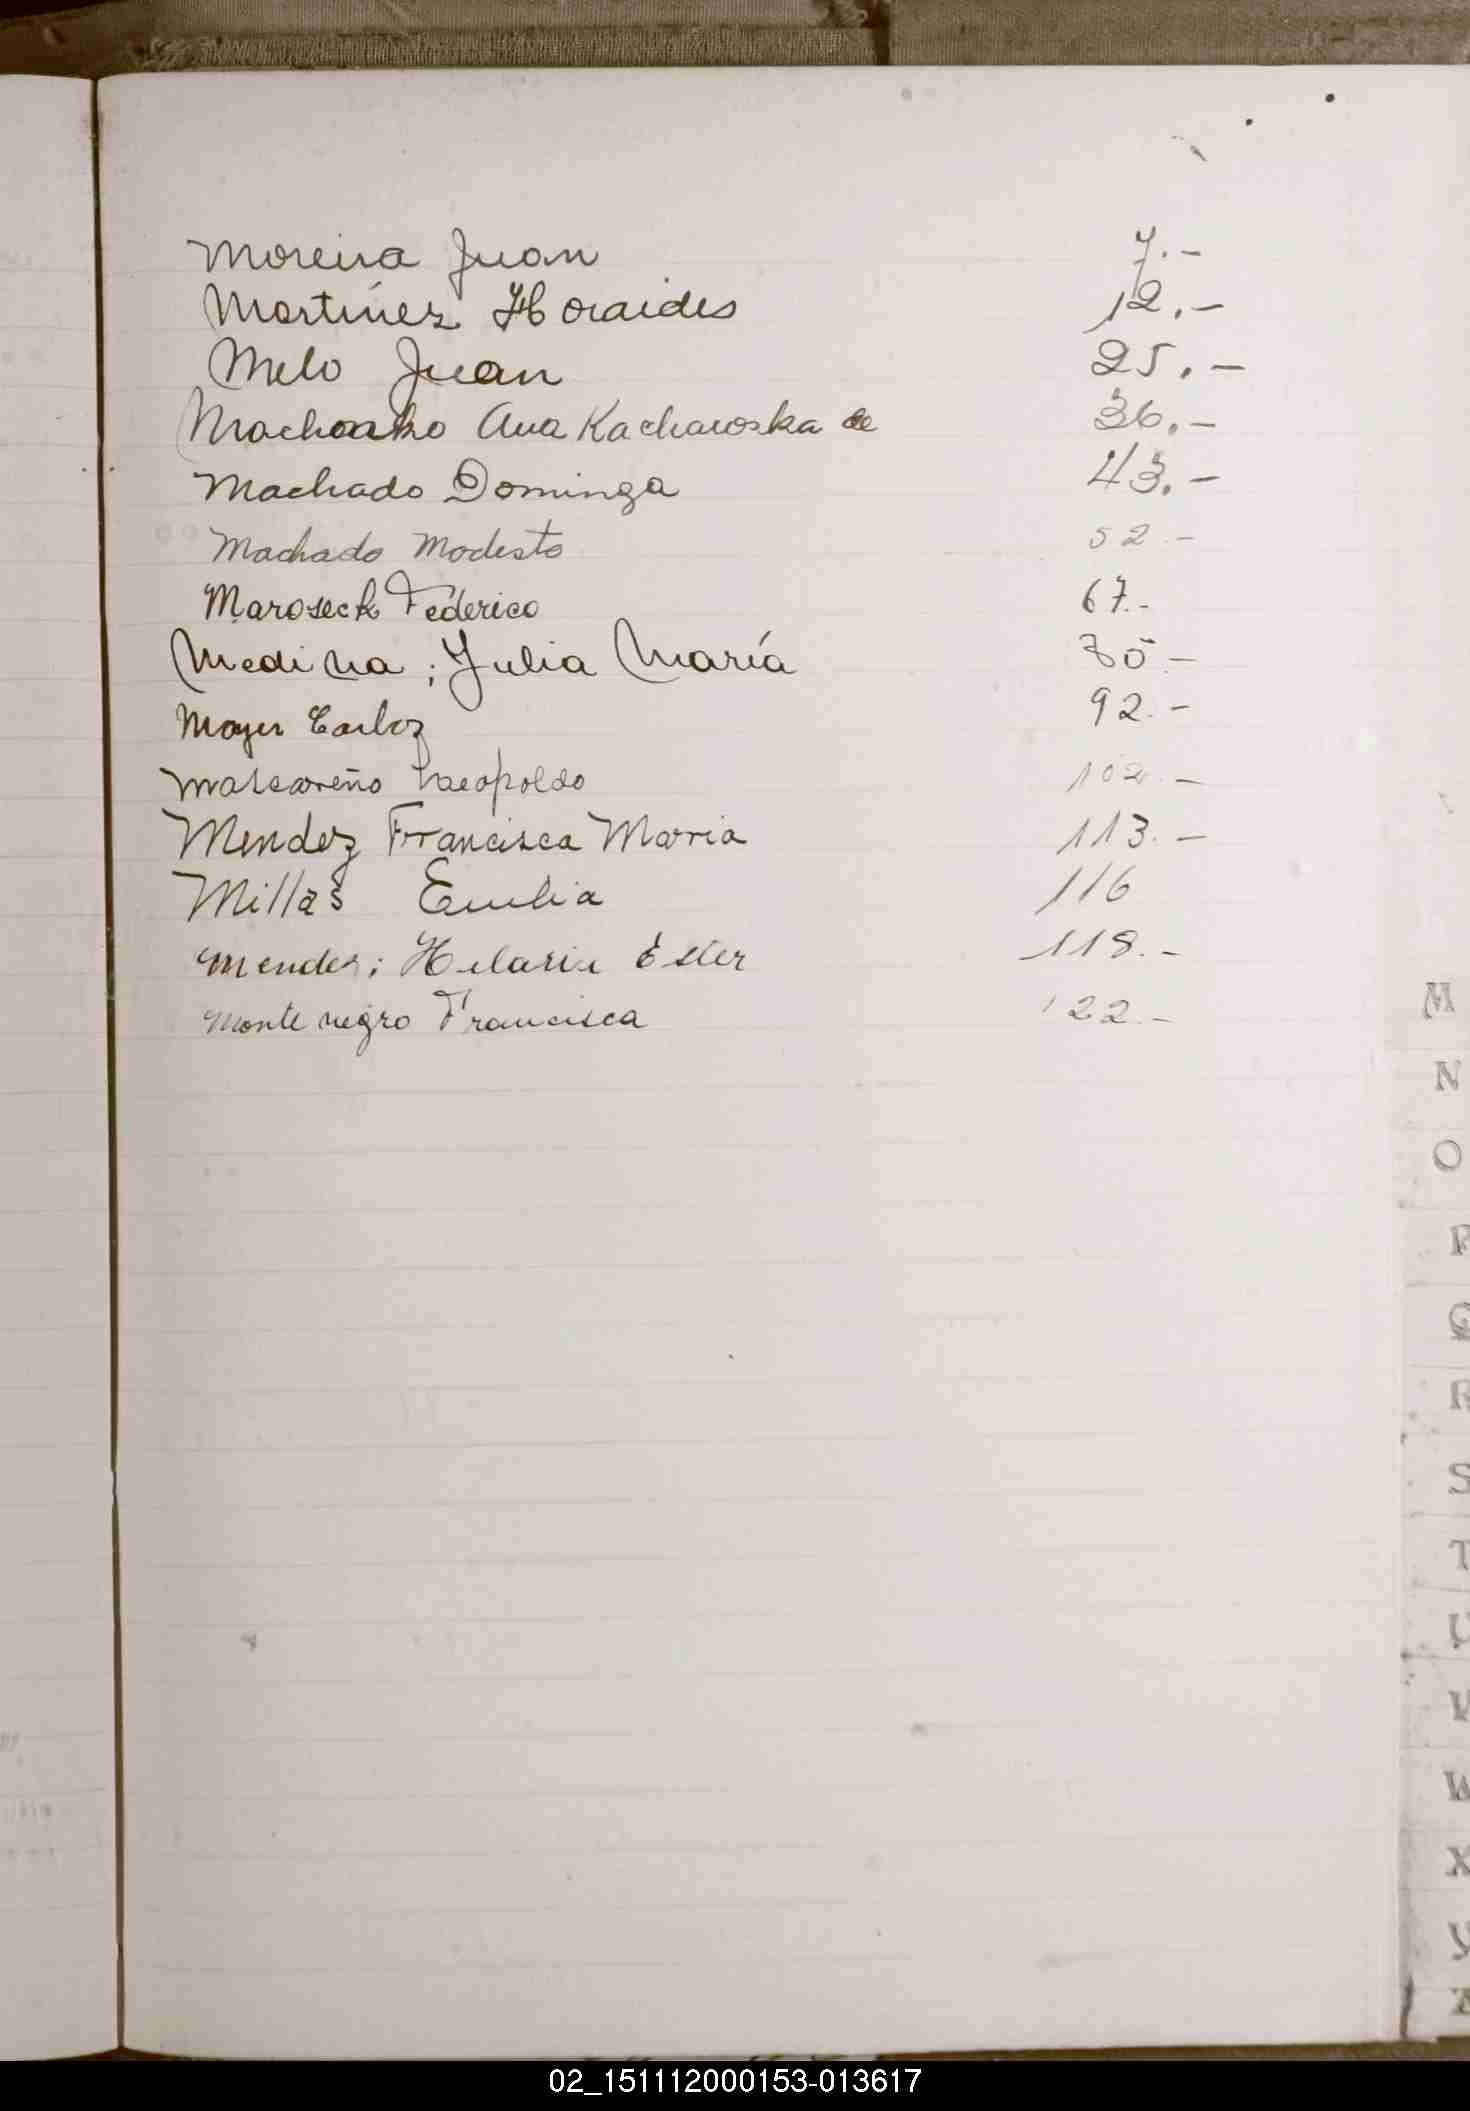 Moreira Juan 7.-
Martínez Horaides 12.-
Melo Juan 25.-
Ana Kachanoska de 36.-
Machado Dominga 43.-
Machado Modesto 52.-
Maroseck Féderico 67.-
Medina ; Julia María 80-
Mayer Carloz 92.-
Mascareño Laeopoldo 102.-
Mendez Francisca Maria 113.-
Millas Emilia 116
Mendez ; Hilaria Ester 118.-
Montenegro Francisca 122.-
M
N
O
P
Q
R
S
T
U
V
W
X
Y
Z
02_151112000153-013617